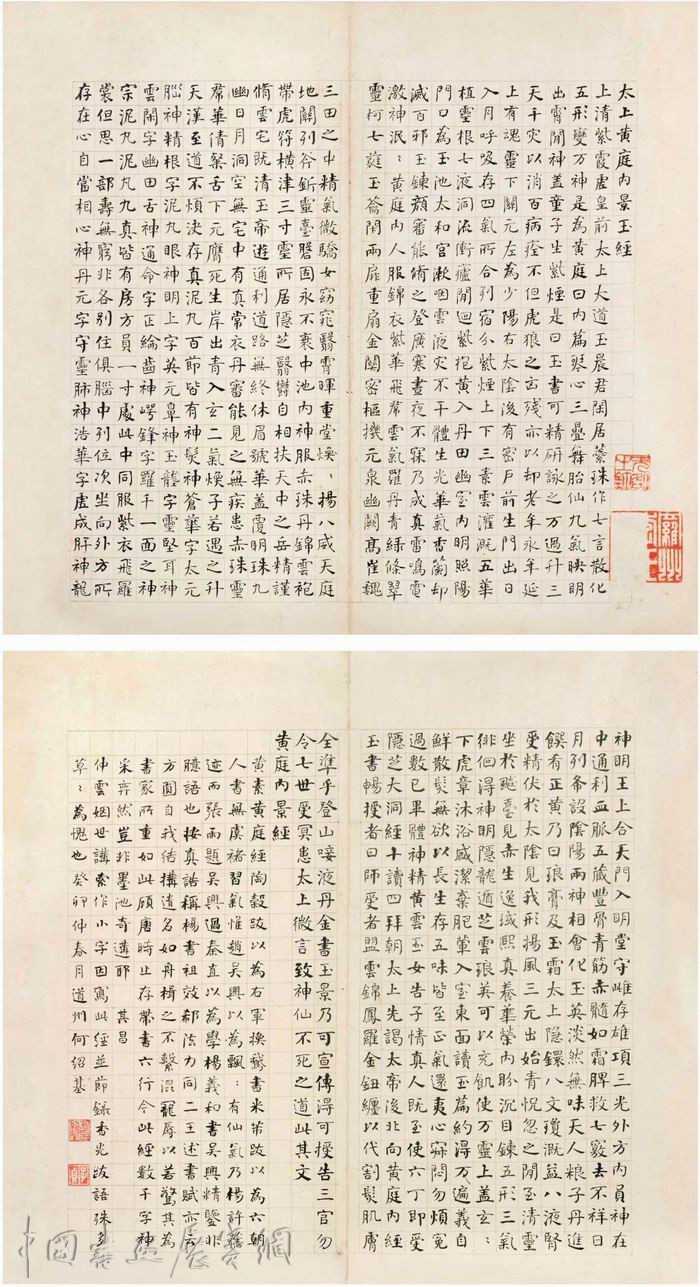 太上黄庭内景玉經
上清紫霞虛皇前太上大道玉晨君閑居蘂珠作七言散化
五形變万神是為黄庭曰内篇琴心三疊舞胎仙九氣映明
出霄間神蓋童子生紫煙是曰玉書可精研詠之万過升三
天千灾以消百病痊不但虎狼之㐫殘亦以却老年永年延
上有魂靈下關元左為少陽右太陰後有密戶前生門出日
入月呼吸存四氣所合列宿分紫煙上下三素雲灌溉五華
植靈根七液洞流衝廬間迴紫抱黄入丹田幽室内明照陽
門口為玉池太和宮漱咽雲液灾不干體生光華氣香蘭却
滅百邪玉鍊顏審能脩之登廣寒晝夜不寐乃成真雷鳴電
激神泯〻黄庭内人服錦衣紫華飛帬雲氣羅丹青綠條翠
靈柯七蕤玉籥閉兩扉重扇金關密樞機元泉幽闕高崔巍
三田之中精氣微驕女窈窕翳霄暉重堂煥〻揚八威天庭
地關列斧斤靈臺盤固永不衰中池内神服赤珠丹錦雲袍
帶虎符橫津三寸靈所居隱芝翳鬱自相扶天中之岳精謹
脩雲宅既清玉帝遊通利道路無終休眉號華蓋覆明珠九
幽日月洞空無宅中有真常衣丹審能見之無疾患赤珠靈
帬華倩粲舌下元膺死生岸出青入玄二氣煥子若遇之升
天漢至道不煩決存真泥九百節皆有神髮神蒼華字太元
腦神精根字泥九眼神明上字英元鼻神玉壟字靈堅耳神
雲閑字幽田舌神通命字正綸齒神崿鋒字羅千一面之神
宗泥九泥九九真皆有房方員一寸處此中同服紫衣飛羅
裳但思一部壽無窮非各別住俱腦中列位次坐向外方所
存在心自當相心神丹元字守靈肺神浩華字虛成肝神龍
神明王上合天門入明堂守雌存雄項三光外方内員神在
中通利血脈五藏豐骨青筋赤髓如霜脾救七竅去不祥日
月列布設陰陽兩神相會化玉英淡然無味天人粮子丹進
饌肴正黄乃曰琅膏及玉霜太上隱鐶八文瓊溉益八液腎
受精伏於太陰見我形揚風三元出始青恍忽之間至清靈
坐於飈臺見赤生逸域熙真養華榮内盼沉目鍊五形三氣
徘徊得神明隱龍遁芝雲琅英可以充飢使万靈上蓋玄〻
下虎章沐浴盛潔棄肥薰入室東面讀玉篇約得万遍義自
鮮散髮無欲以長生存五味皆至正氣還夷心寂悶勿煩冤
過數已畢體神精黄雲玉女告子情真人既至使六丁即受
隱芝大洞經十讀四拜朝太上先謁太帝後北向黄庭内經
玉書暢授者曰師受者盟雲錦鳳羅金鈕纏以代割髮肌膚
全準乎登山唼液丹金書玉景乃可宣傳得可授告三官勿
令七世受冥患太上微言致神仙不死之道此其文
黄庭内景經
黄素黄庭經陶穀跋以為右軍換鵞書米芾跋以為六朝
人書無虞褚習氣惟趙吳興以為飄〻有仙氣乃楊許舊
迹而張雨題吳興過秦直以為學楊義和書吳興精鑒非
臆語也按真誥稱楊書祖效郄法力同二王述書賦亦云
方圓自我結構遺名如舟楫之不繫混寵辱以若驚其為
書家所重如此顧唐時止存帶書六行今此經數千字神
采奕然豈非墨池奇遘耶 其昌
仲雲姻世講索作小字因寫此經並節錄香光跋語殊多
草〻為愧也癸卯仲春月道州何紹基